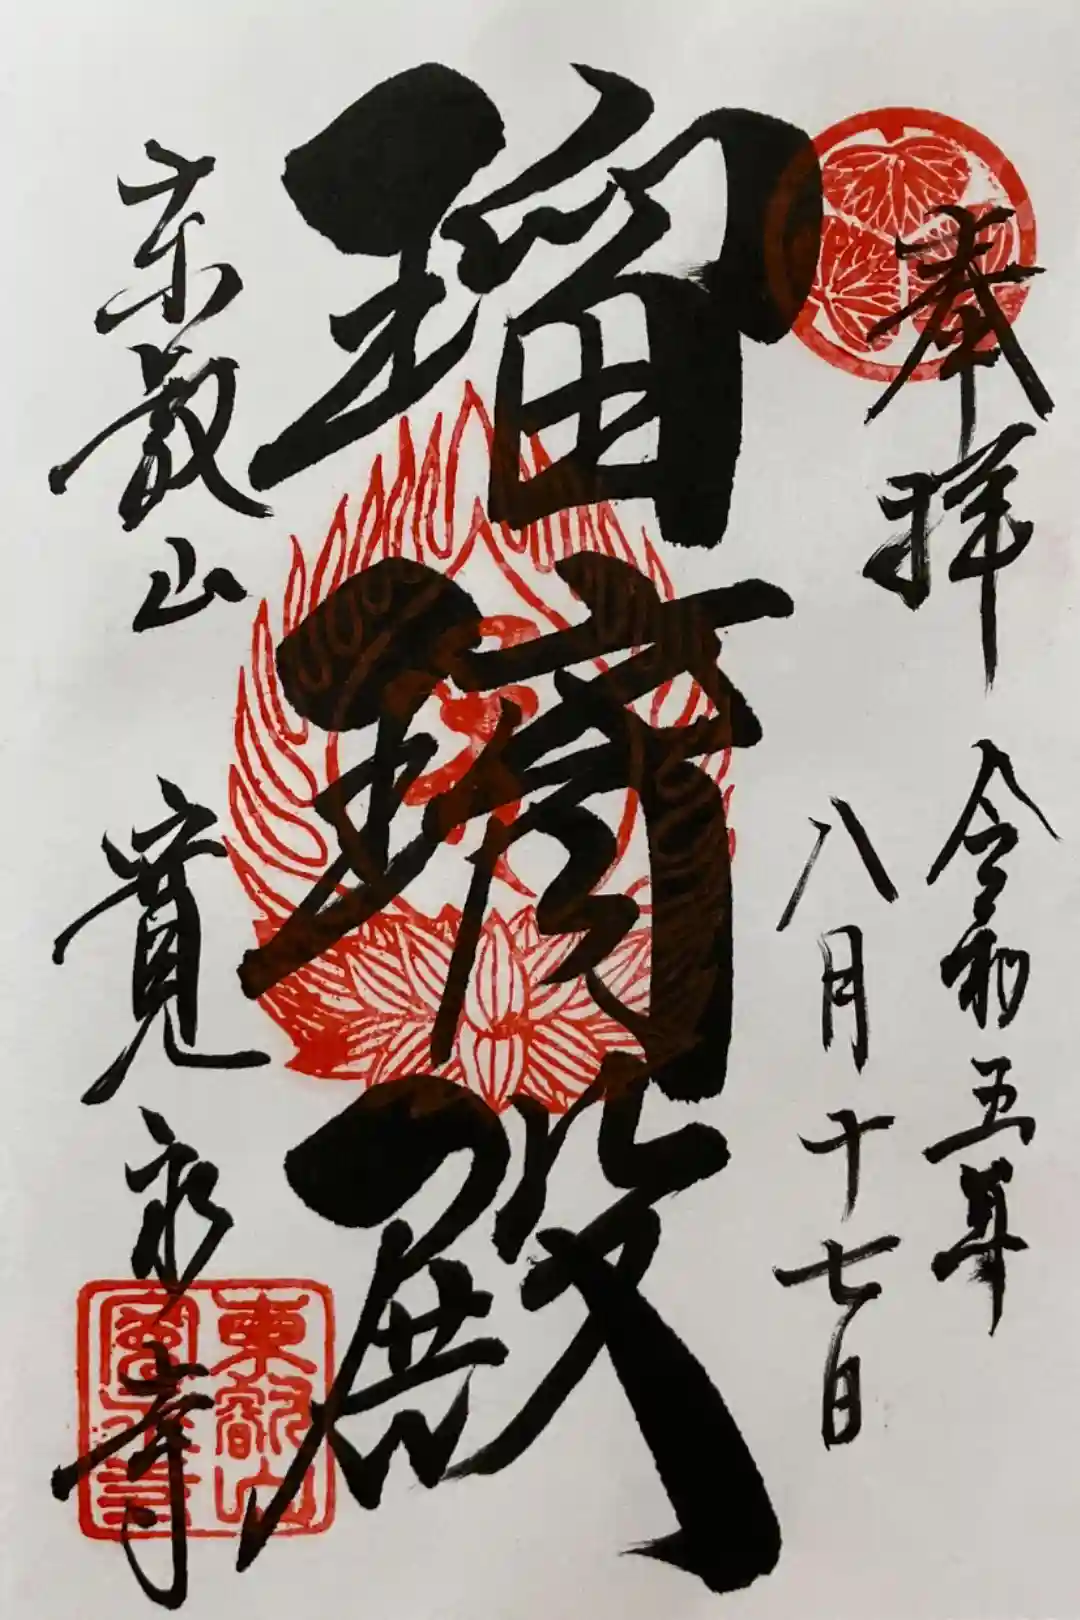 奉拝
令和五年
八月十七日
瑠璃殿
東叡山
寛永寺
東叡山
寛永寺